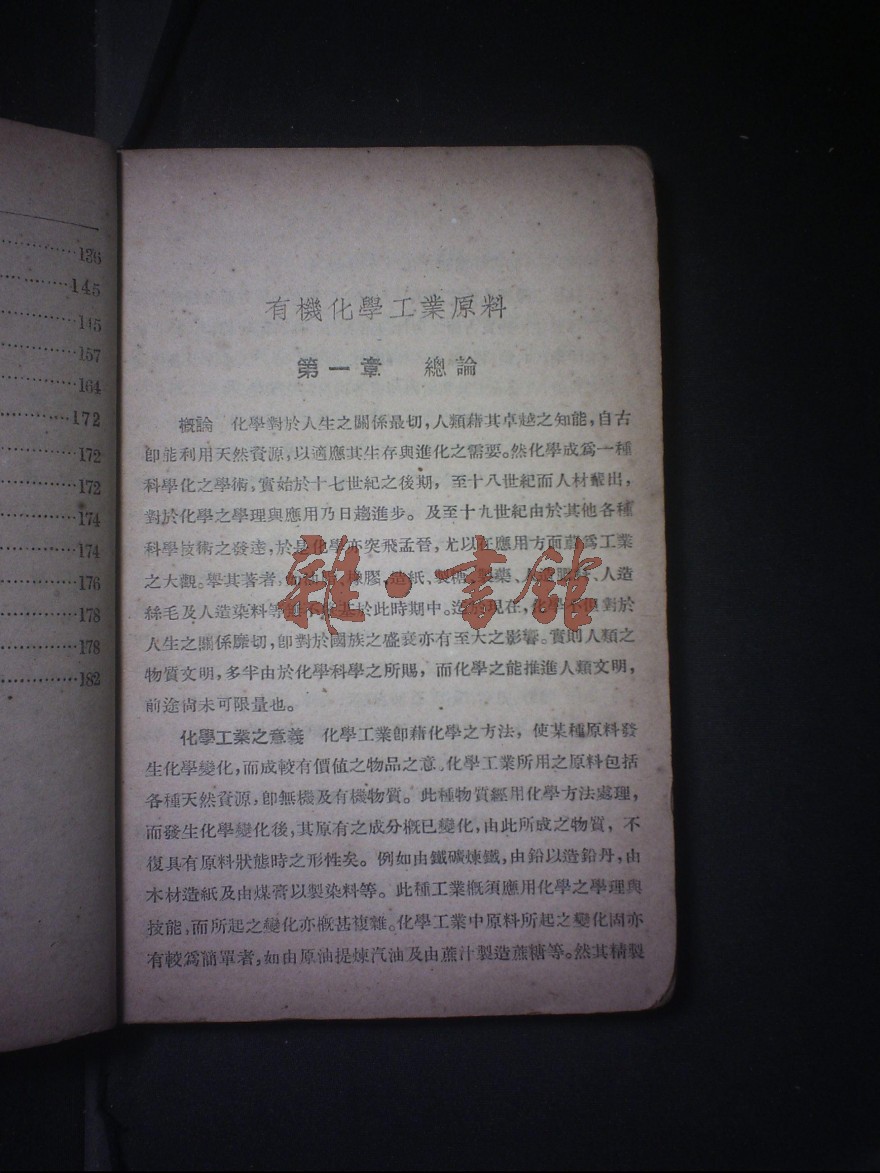 136
145
145
157
164
172
172
172
174
174
176
178
178
182
有機化學工業原料
第一章 總論
概論 化學對於人生之關係最切，人類藉其卓越之知能，自古
卽能利用天然資源，以適應其生存與進化之需要。然化學成爲一種
科學化之學術，實始於十七世紀之後期，至十八世紀而人材輩出，
對於化學之學理與應用乃日趨進步。及至十九世紀由於其他各種
科學技術之發達，於是化學亦突飛孟晉，尤以在應用方面蔚爲工業
之大觀。舉其著者，如油脂、橡膠、造紙、製糖、製藥、人造肥料、人造
絲毛及人造染料等，不基於此時期中。迄於現在，化學不但對於
人生之關係靡切，卽對於國族之盛衰亦有至大之影響。實則人類之
物質文明，多半由於化學科學之所賜，而化學之能推進人類文明，
前途尙未可限量也。
化學工業之意義 化學工業卽藉化學之方法，使某種原料發
生化學變化，而成較有價値之物品之意。化學工業所用之原料包括
各種天然資源，卽無機及有機物質。此種物質經用化學方法處理，
而發生化學變化後，其原有之成分槪已變化，由此所成之物質，不
復具有原料狀態時之形性矣。例如由鐵礦煉鐵，由鉛以造鉛丹，由
木材造紙及由煤膏以製染料等。此種工業槪須應用化學之學理與
技能，而所起之變化亦槪甚複雜。化學工業中原料所起之變化固亦
有較爲簡單者，如由原油提煉汽油及由蔗汁製造蔗糖等。然其精製
雜·書館